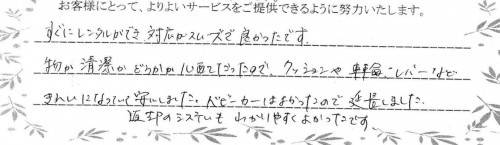 お客様にとって、よりよいサービスをご提供できるように努力いたします。
すぐにレンタルができ 対応がスムーズで良かったです。
物が清潔かどうかが心配だったので、クッションや車輪・レバーなど
きれいになっていて安心しました。ベビーカーはよかったので延長しました。
返却のシステムも わかりやすくよかったです。